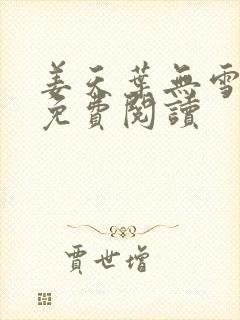 姜天葉無雪
免費閱讀
賈世增